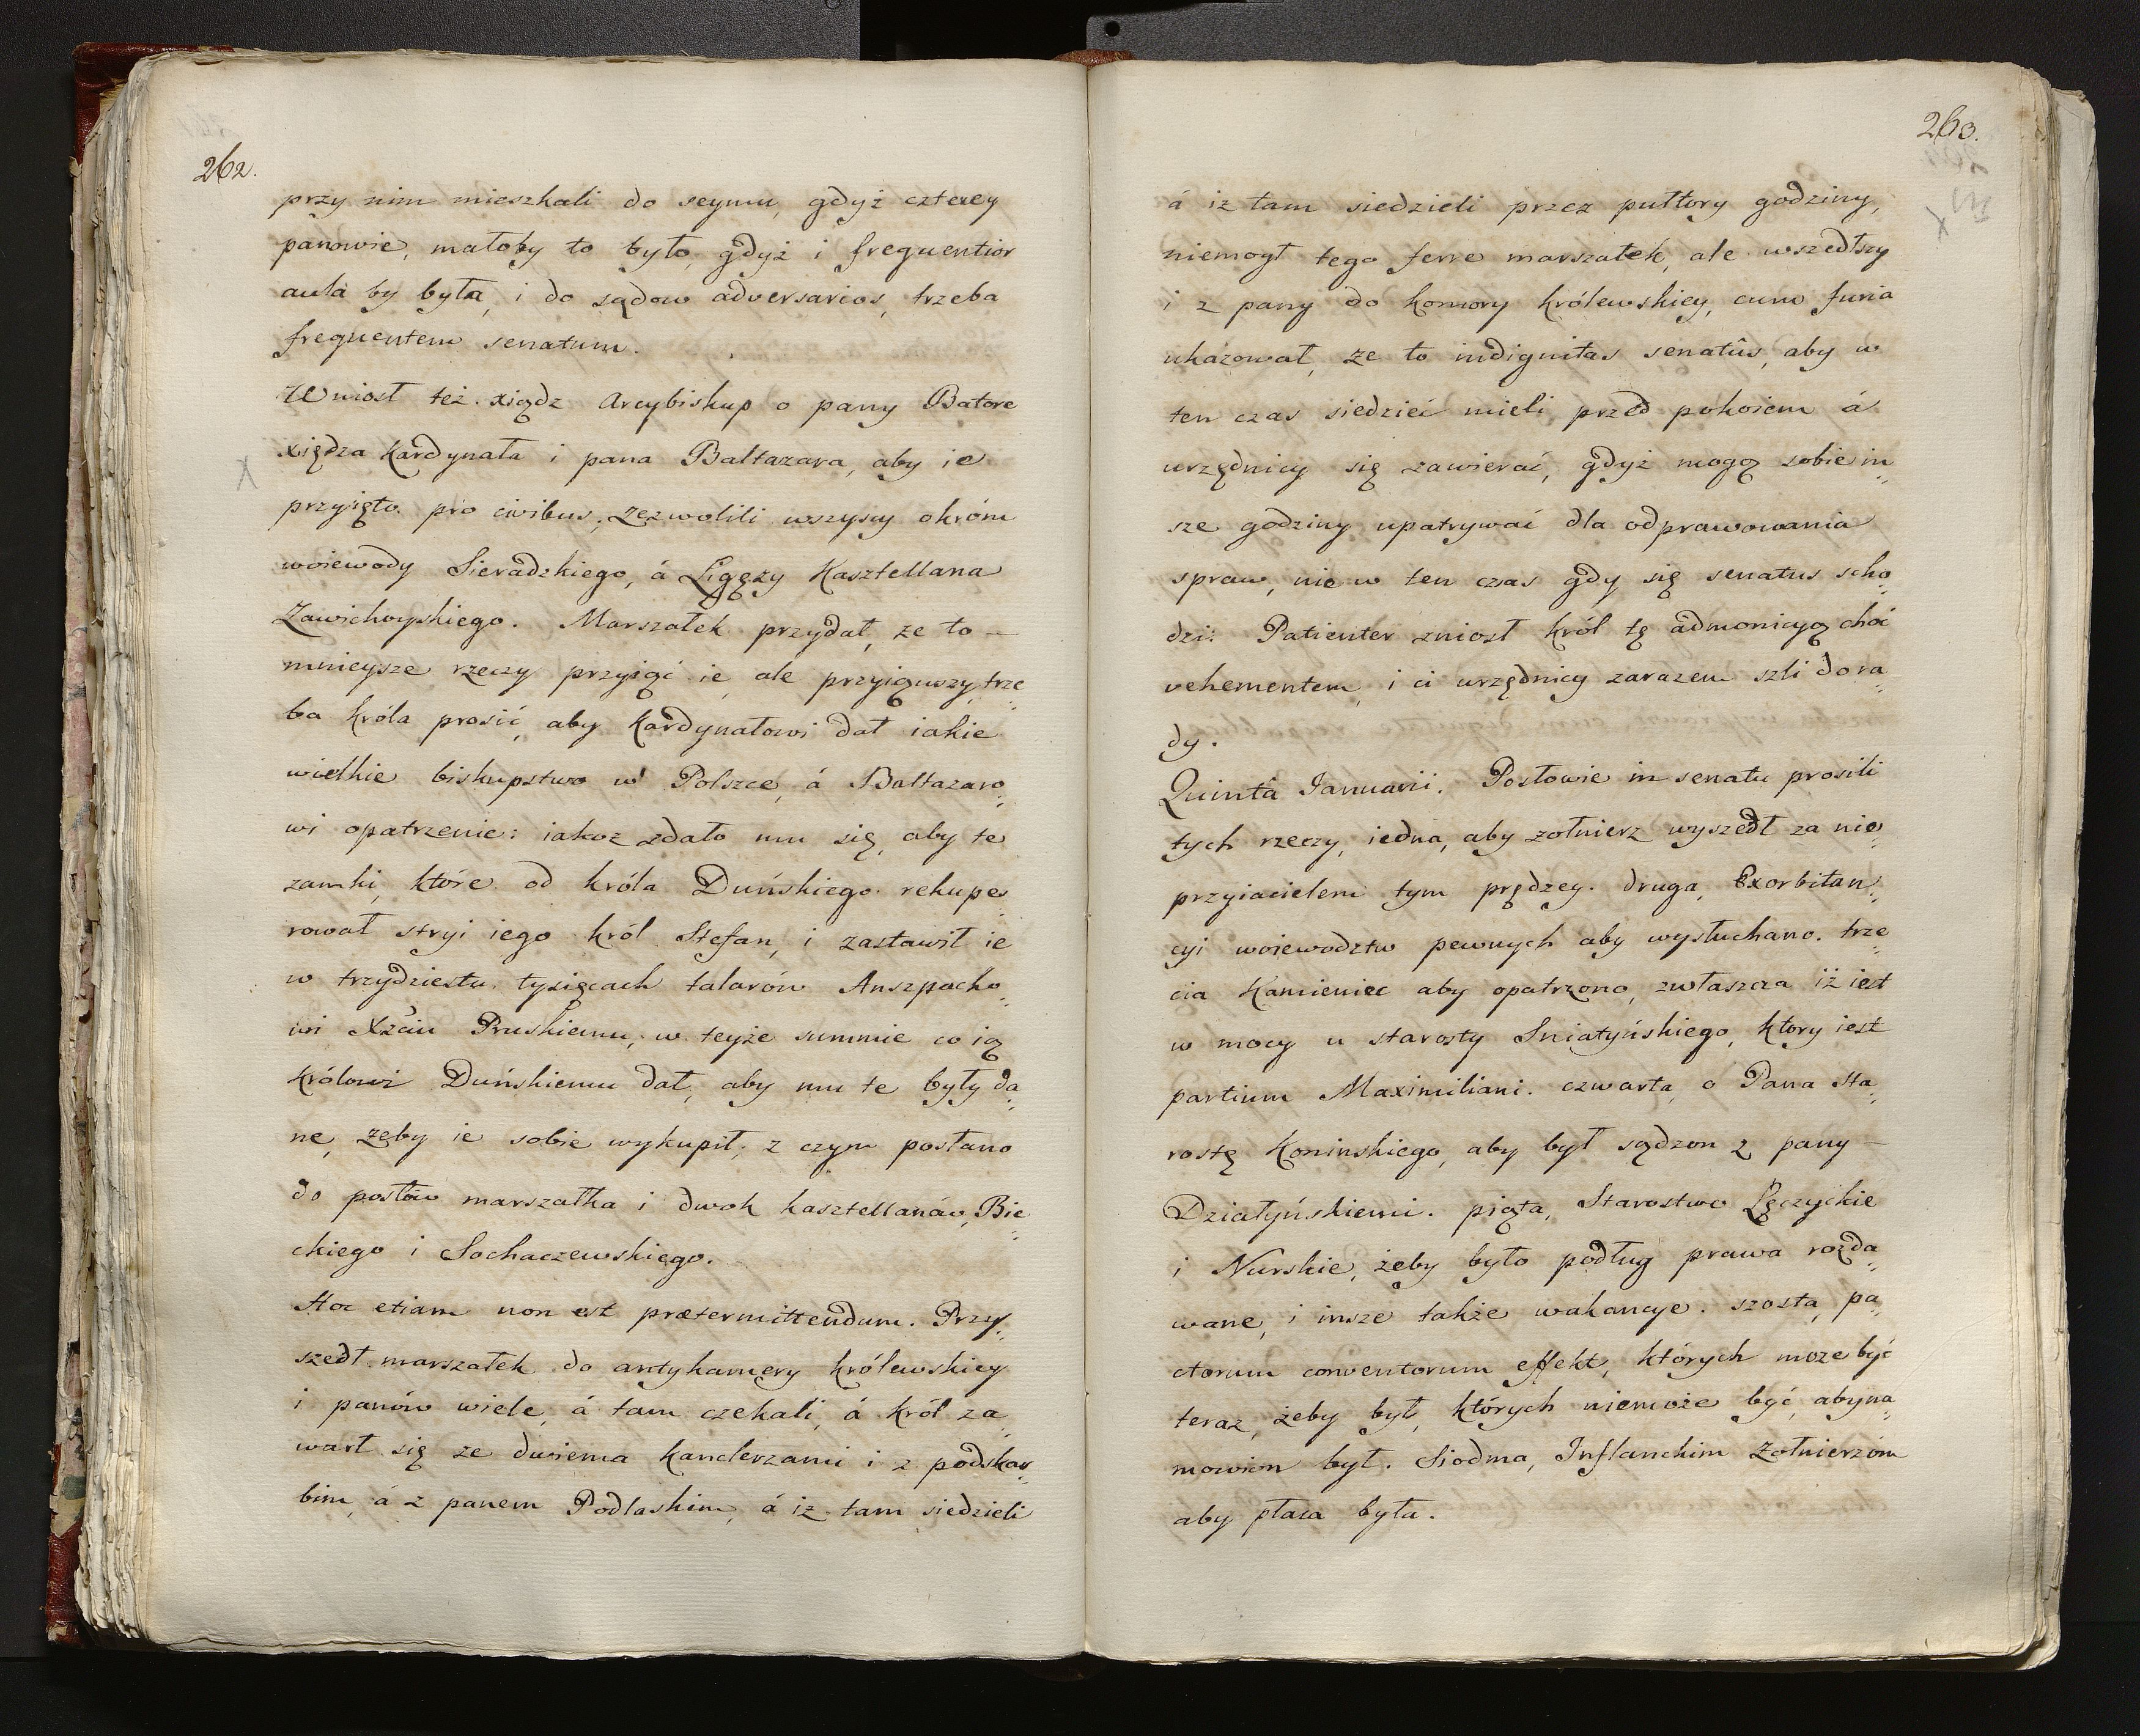 262.
przy nim mieszkali do seymu, gdyż czterey
panowie, małoby to było, gdyż i frequentior
aula by była, i do sądow adversarios, trzeba
frequentem senatum.
Wniosł też xiądz Arcybiskup o pany Batore
xiędza Kardynała i pana Baltazara, aby ie
przyięto pro civibus; zezwolili wszyscy okróm
woiewody Sieradzkiego, á Ligęzy Kasztellana
Zawichoyskiego. Marszałek przydał, ze to —
mnieysze rzeczy przyiąć ie, ale przyiąwszy, trze„
ba króla prosić, aby Kardynałowi dał iakie
wielkie biskupstwo w Polszce, á Baltazaro„
wi opatrzenie: iakoz zdało mu się, aby te
zamki, które od króla Duńskiego rekupe„
rował stryi iego król Stefan, i zastawił ie
w trzydziestu tysięcach talarów Anszpacho„
wi Xżciu Pruskiemu, w teyże summie co ią
królowi Duńskiemu dał, aby mu te były da„
ne, żeby ie sobie wykupił; z czym posłano
do posłów marszałka i dwoh kasztellanów, Bie„
ckiego i Sochaczewskiego.
Hoc etiam non est prætermittendum. Przy„
szedł marszałek do antykamery królewskiey
i panów wiele, á tam czekali, á król za„
warł się ze dwiema kanclerzami i z podskar„
bim, á z panem Podlaskim, á iz tam siedzieli
263.
á iz tam siedzieli przez pułtory godziny,
niemogł tego ferre marszałek, ale wszedłszy
i z pany do komory królewskiey, cum furia
ukazował, ze to indignitas senatûs, aby w
ten czas siedzieć mieli przed pokoiem á
urzędnicy się zawierać, gdyż mogą sobie in„
sze godziny upatrywać dla odprawowania
spraw, nie w ten czas gdy się senatus scho„
dzi: Patienter zniosł król tę admonicyą choć
vehementem, i ci urzędnicy zarazem szli do ra„
dy.
Quintâ Januarii. Posłowie in senatu prosili
tych rzeczy, iedna, aby zołnierz wyszedł za nie„
przyiacielem tym prędzey. druga, Exorbitan„
cyi woiewodztw pewnych aby wysłuchano. trze„
cia Kamieniec aby opatrzono, zwłaszcza iż iest
w mocy u starosty Sniatyńskiego, ktory iest
partium Maximiliani. czwarta, o Pana Sta„
rostę Koninskiego, aby był sądzon z pany —
Działyńskiemi. piąta, Starostwo Łęczyckie
i Nurskie, żeby było podług prawa rozda„
wane, i insze także wakancye. szosta, pa„
ctorum conventorum effekt, których moze być
teraz, żeby był, których niemoże być, aby na„
mowion był. Siodma, Inflanckim Zołnierzóm
aby płaca była.